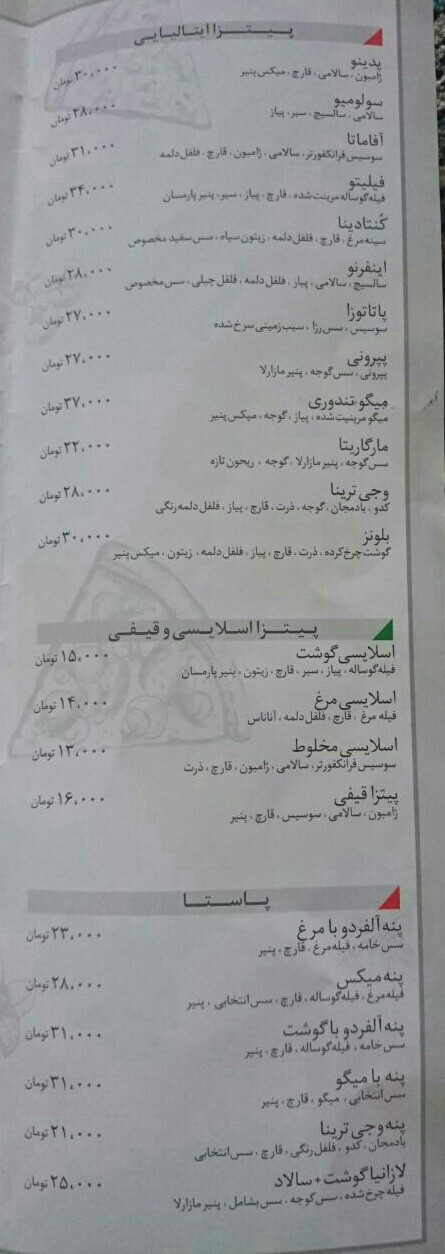 پیتزا ایتالیایی
پدینو ۳۰،۰۰۰ تومان
ژامبون، سالامی، قارچ، میکس پنیر
سولومیو ۲۸،۰۰۰ تومان
سالامی، سالسیچ، سیر، پیاز
آفاماتا ۳۱،۰۰۰ تومان
سوسیس فرانکفورتر، سالامی، ژامبون، قارچ، فلفل دلمه
فیلیتو ۳۴،۰۰۰ تومان
فیله گوساله مرینت شده، قارچ، پیاز، سیر، پنیر پارمسان
کُنتادینا ۳۰،۰۰۰ تومان
سینه مرغ، قارچ، فلفل دلمه، زیتون سیاه، سس سفید مخصوص
اینفرنو ۲۸،۰۰۰ تومان
سالسیچ، سالامی، پیاز، فلفل دلمه، فلفل چیلی، سس مخصوص
پاتاتوزا ۲۷،۰۰۰ تومان
سوسیس، سس رزا، سیب زمینی سرخ شده
پپرونی ۲۷،۰۰۰ تومان
پپرونی، سس گوجه، پنیر مازارلا
میگو تندوری ۳۷،۰۰۰ تومان
میگو مرینیت شده، پیاز، گوجه، میکس پنیر
مارگاریتا ۲۲،۰۰۰ تومان
سس گوجه، پنیر مازارلا، گوجه، ریحون تازه
وجی ترینا ۲۸،۰۰۰ تومان
کدو، بادمجان، گوجه، ذرت، قارچ، پیاز، فلفل دلمه رنگی
بلونز ۳۰،۰۰۰ تومان
گوشت چرخ کرده، ذرت، قارچ، پیاز، فلفل دلمه، زیتون، میکس پنیر
پیتزا اسلایسی و قیفی
اسلایسی گوشت ۱۵،۰۰۰ تومان
فیله گوساله، پیاز، سیر، قارچ، زیتون، پنیر پارمسان
اسلایسی مرغ ۱۴،۰۰۰ تومان
فیله مرغ، قارچ، فلفل دلمه، آناناس
اسلایسی مخلوط ۱۳،۰۰۰ تومان
سوسیس فرانکفورتر، سالامی، ژامبون، قارچ، ذرت
پیتزا قیفی ۱۶،۰۰۰ تومان
ژامبون، سالامی، سوسیس، قارچ، پنیر
پاستا
پنه آلفردو با مرغ ۲۳،۰۰۰ تومان
سس خامه، فیله مرغ، قارچ، پنیر
پنه میکس ۲۸،۰۰۰ تومان
فیله مرغ، فیله گوساله، قارچ، سس انتخابی، پنیر
پنه آلفردو با گوشت ۳۱،۰۰۰ تومان
سس خامه، فیله گوساله، قارچ، پنیر
پنه با میگو ۳۱،۰۰۰ تومان
سس انتخابی، میگو، قارچ، پنیر
پنه وجی ترینا ۲۱،۰۰۰ تومان
بادمجان، کدو، فلفل رنگی، قارچ، سس انتخابی
لازانیا گوشت + سالاد ۲۵،۰۰۰ تومان
فیله چرخ شده، سس گوجه، سس بشامل، پنیر مازارلا